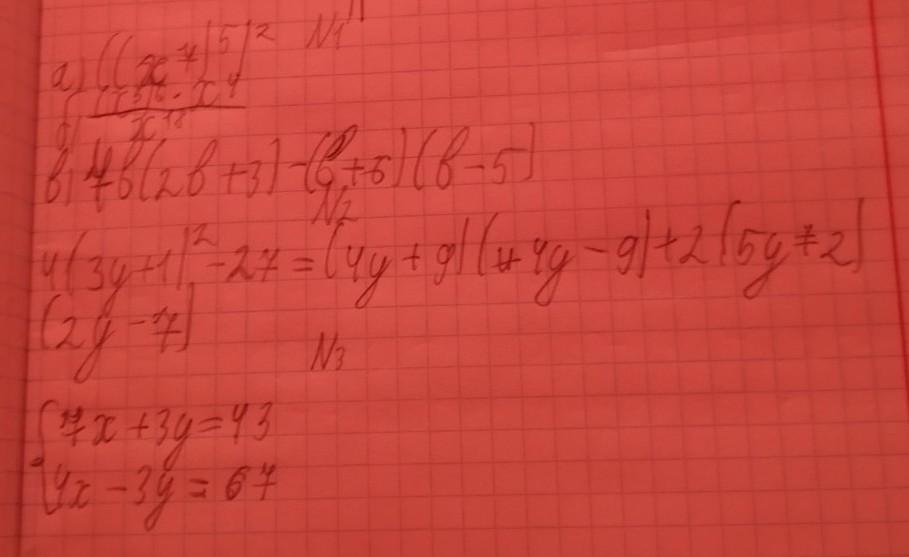 N1
а) ((x⁴)⁵)²
б) (x³)⁶ · x⁴ / x¹⁸
в) 4в(2в+3)-(в+5)(в-5)
N2
4(3y+1)²-27=(4y+9)(4y-9)+2(5y+2)
(2y-7)
N3
7x+3y=43
4x-3y=67